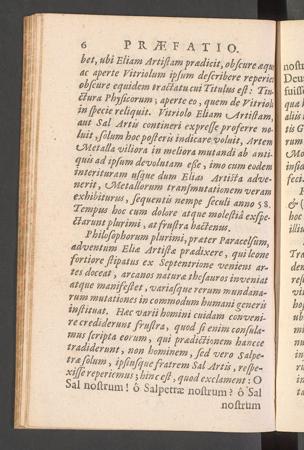 6 PRÆFATIO.
bet, ubi Eliam Artistam prædicit, obscure æque
ac aperte Vitriolum ipsum describere reperies
obscure equidem tractatu cui Titulus est: Tin-
ctura Physicorum; aperte eo, quem de Vitriolo
in specie reliquit. Vitriolo Eliam Artistam,
aut Sal Artis contineri expresse proferre no-
luit, solum hoc posteris indicare voluit, Artem
Metalla viliora in meliora mutandi ab anti-
quis ad ipsum devolutam esse, imo cum eodem
interituram usque dum Elias Artista adve-
nerit, Metallorum transmutationem veram
exhibiturus, sequentis nempe seculi anno 58.
Tempus hoc cum dolore atque molestia exspe-
ctarunt plurimi, at frustra hactenus.
Philosophorum plurimi, præter Paracelsum,
adventum Eliæ Artistæ prædixere, qui leone
fortiore stipatus ex Septentrione veniens ar-
tes doceat, arcanos naturæ thesauros inveniat
atque manifestet, variasque rerum mundana-
rum mutationes in commodum humani generis
instituat. Hæc varii homini cuidam conveni-
re crediderunt frustra, quod si enim consula-
mus scripta eorum, qui prædictionem hancce
tradiderunt, non hominem, sed vero Salpe-
træ solum, ipsiusque fratrem Sal Artis, respe-
xisse reperiemus; hinc est, quod exclament: O
Sal nostrum! ô Salpetræ nostrum? ô Sal
nostrum
nostr
Deu